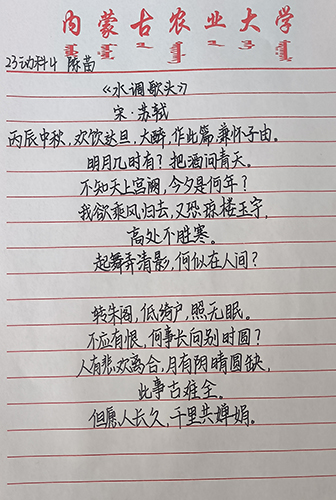 内蒙古农业大学
23动科4 陈苗
《水调歌头》
宋·苏轼
丙辰中秋,欢饮达旦,大醉,作此篇,兼怀子由。
明月几时有?把酒问青天。
不知天上宫阙,今夕是何年?
我欲乘风归去,又恐琼楼玉宇,
高处不胜寒。
起舞弄清影,何似在人间?
转朱阁,低绮户,照无眠。
不应有恨,何事长向别时圆?
人有悲欢离合,月有阴晴圆缺,
此事古难全。
但愿人长久,千里共婵娟。